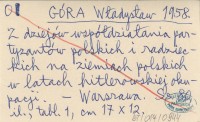 GÓRA Władysław 1958.
Z dziejów współdziałania par-
tyzantów polskich i radziec-
kich na ziemiach polskich
w latach hitlerowskiej oku-
pacji. - Warszawa.
il., tabl. 1, cm 17 X 12.